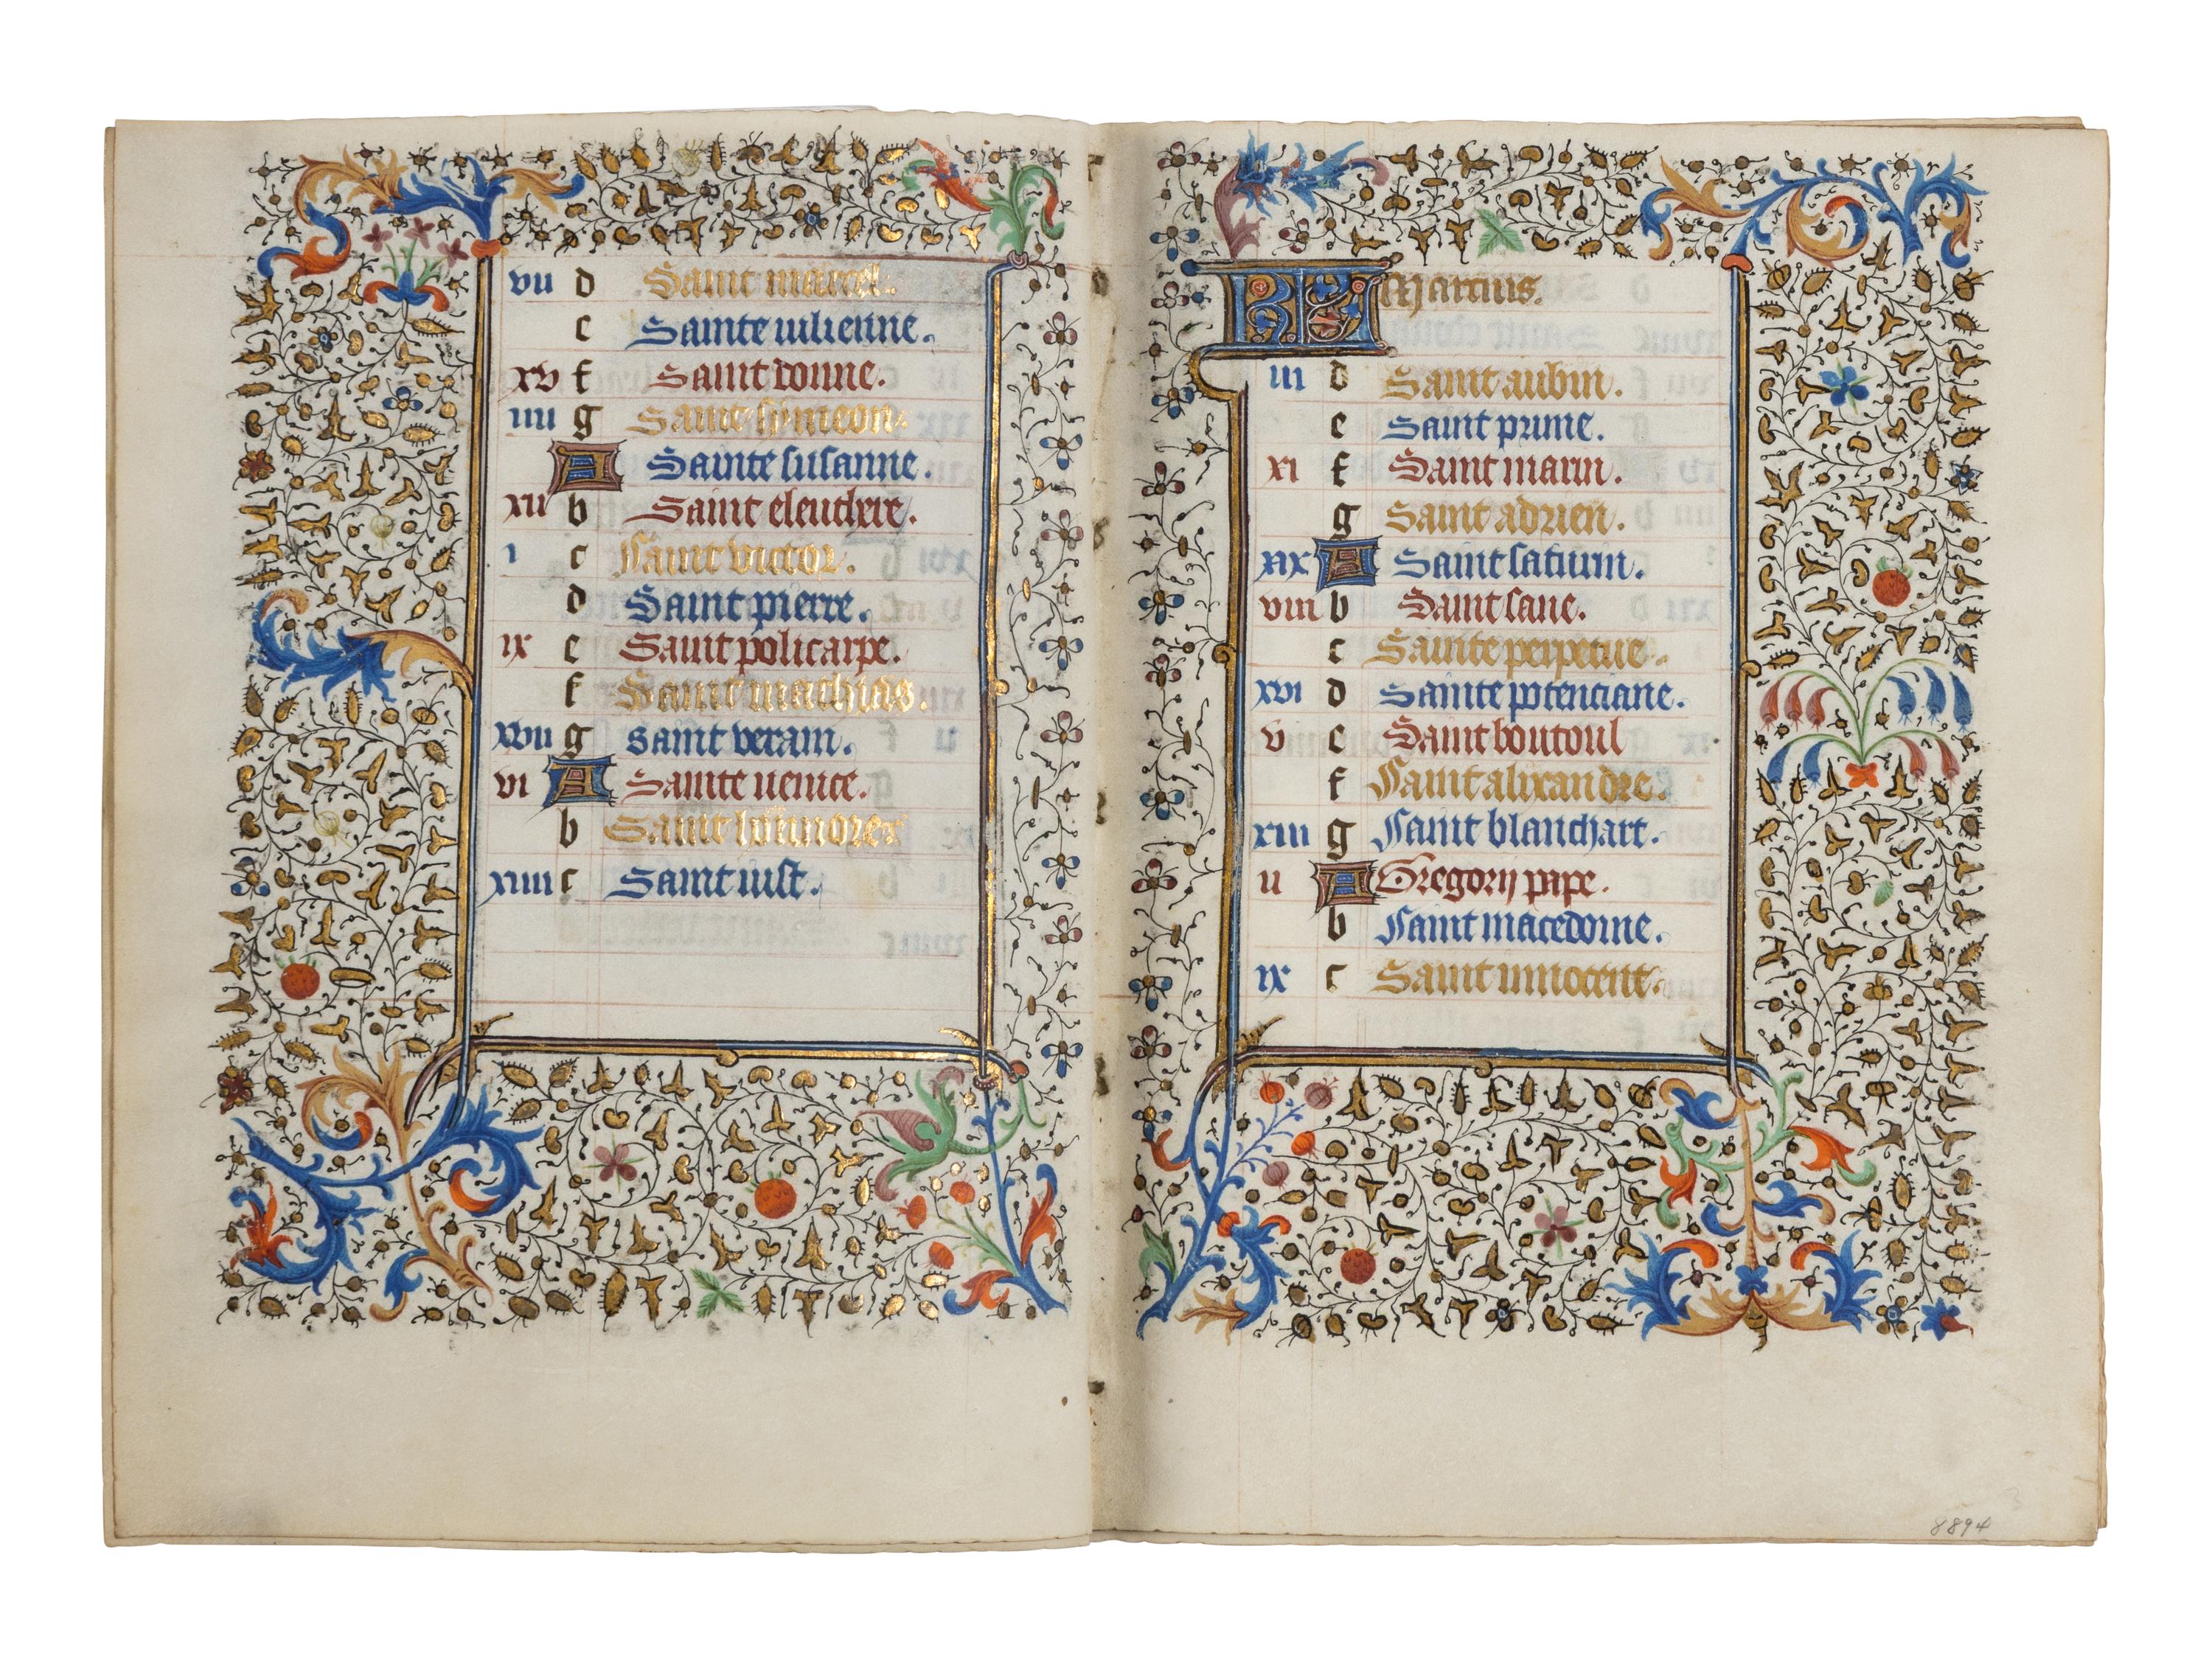 vii d Saint marcel.
e Sainte iulienne.
xv f Saint donne.
iiii g Saint symeon.
A Sainte susanne.
xii b Saint eleuthere.
i c Saint victor.
d Saint pierre.
ix e Saint policarpe.
f Saint mathias.
xvii g saint verain.
vi A Sainte venice.
b Saint honnore
xiiii c Saint iust.
KL Marcius.
iii d Saint aubin.
e Saint prime.
xi f Saint marin.
g Saint adrien.
xix A Saint saturin.
viii b Saint sane.
c Sainte perpetue.
xvi d Sainte potenciane.
v e Saint boutoul
f Saint alixandre.
xiii g Saint blanchart.
ii A Gregorij pape.
b Saint macedoine.
ix c Saint innocent.
8894